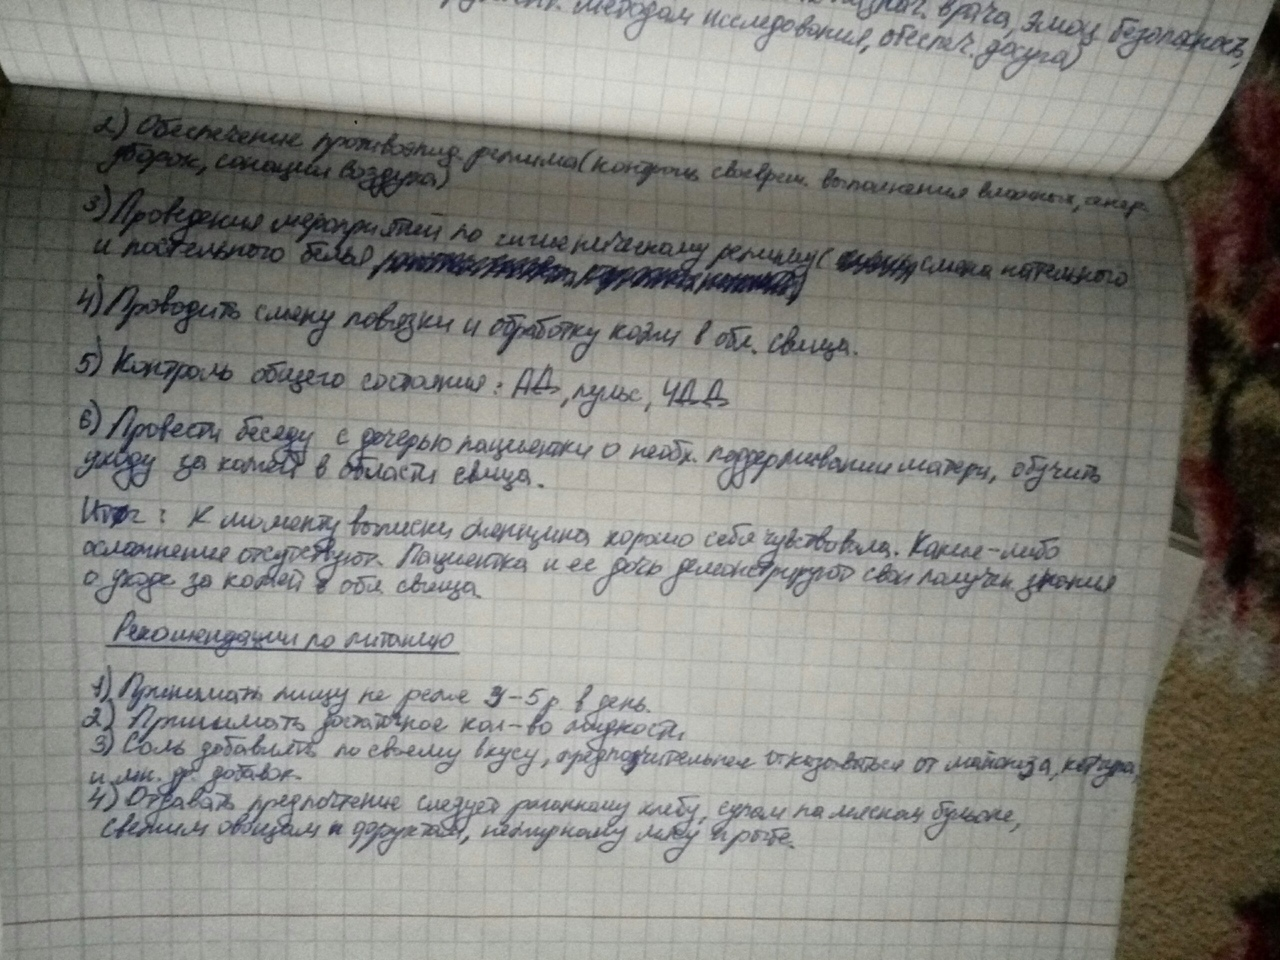 врача, эмоц. безопасность,
методам исследования, обеспеч. досуга)
2) Обеспечение противоэпид. режима (контроль своеврем. выполнения влажных, генер.
уборок, санации воздуха)
3) Проведения мероприятий по гигиеническому режиму ( смена нательного
и постельного белья
4) Проводить смену повязки и обработку кожи в обл. свища.
5) Контроль общего состояния: АД, пульс, ЧДД
6) Провести беседу с дочерью пациентки о необх. поддерживании матери, обучить
уходу за кожей в области свища.
Итог: К моменту выписки женщина хорошо себя чувствовала. Какие-либо
осложнение отсутствуют. Пациентка и ее дочь демонстрируют свои получен. знания
о уходе за кожей в обл. свища.
Рекомендации по питанию
1) Принимать пищу не реже 3-5 р. в день.
2) Принимать достаточное кол-во жидкости.
3) Соль добавлять по своему вкусу, отказываться от майонеза, кетчупа,
и мн. др. добавок.
4) Отдавать предпочтение следует ржаному хлебу, супам на мясном бульоне,
свежим овощам и фруктам, нежирному мясу и рыбе.